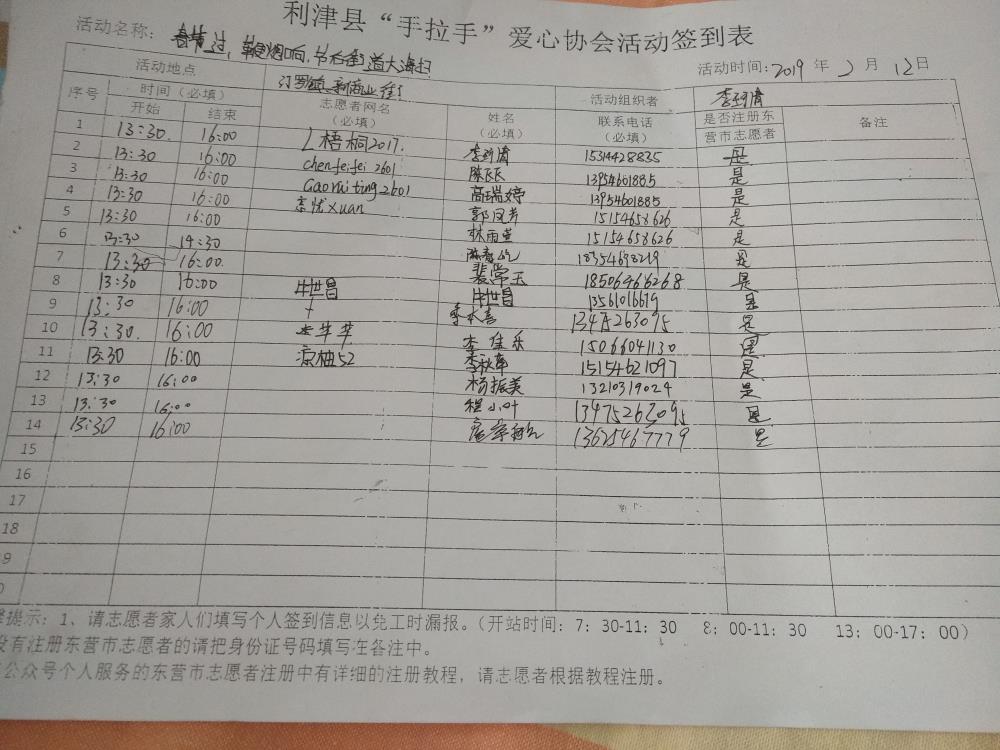 利津县“手拉手”爱心协会活动签到表
活动名称： 春节过，鞭炮响，节后街道大海扫
活动时间：2019 年 2 月 12日
活动地点 汀罗镇 商业街 活动组织者
序号 时间（必填） 志愿者网名（必填） 姓名（必填） 联系电话（必填） 是否注册东营市志愿者 备注
开始 结束
1 13:30 16:00 L梧桐2017. 15314428835 是
2 13:30 16:00 chenfeifei 2601 陈飞飞 13954601885 是
3 13:30 16:00 Gaoruiting2601 高瑞婷 13954601885 是
4 13:30 16:00 xuan 15154658626 是
5 13:30 16:00 林雨萱 15154658626 是
6 13:30 14:30 18354698219 是
7 13:30 16:00 裴常玉 18506466268 是
8 13:30 16:00 牛世昌 牛世昌 13561016679 是
9 13:30 16:00 13475263095 是
10 13:30 16:00 李佳乐 15066041130 是
11 13:30 16:00 凉柚52 15154621097 是
12 13:30 16:00 杨振美 13210319024 是
13 13:30 16:00 程小叶 13475263095 是
14 13:30 16:00 13625467779 是
15
16
17
18
9
提示：1、请志愿者家人们填写个人签到信息以免工时漏报。（开站时间：7：30-11：30 8：00-11：30 13：00-17：00）
没有注册东营市志愿者的请把身份证号码填写在备注中。
公众号个人服务的东营市志愿者注册中有详细的注册教程，请志愿者根据教程注册。